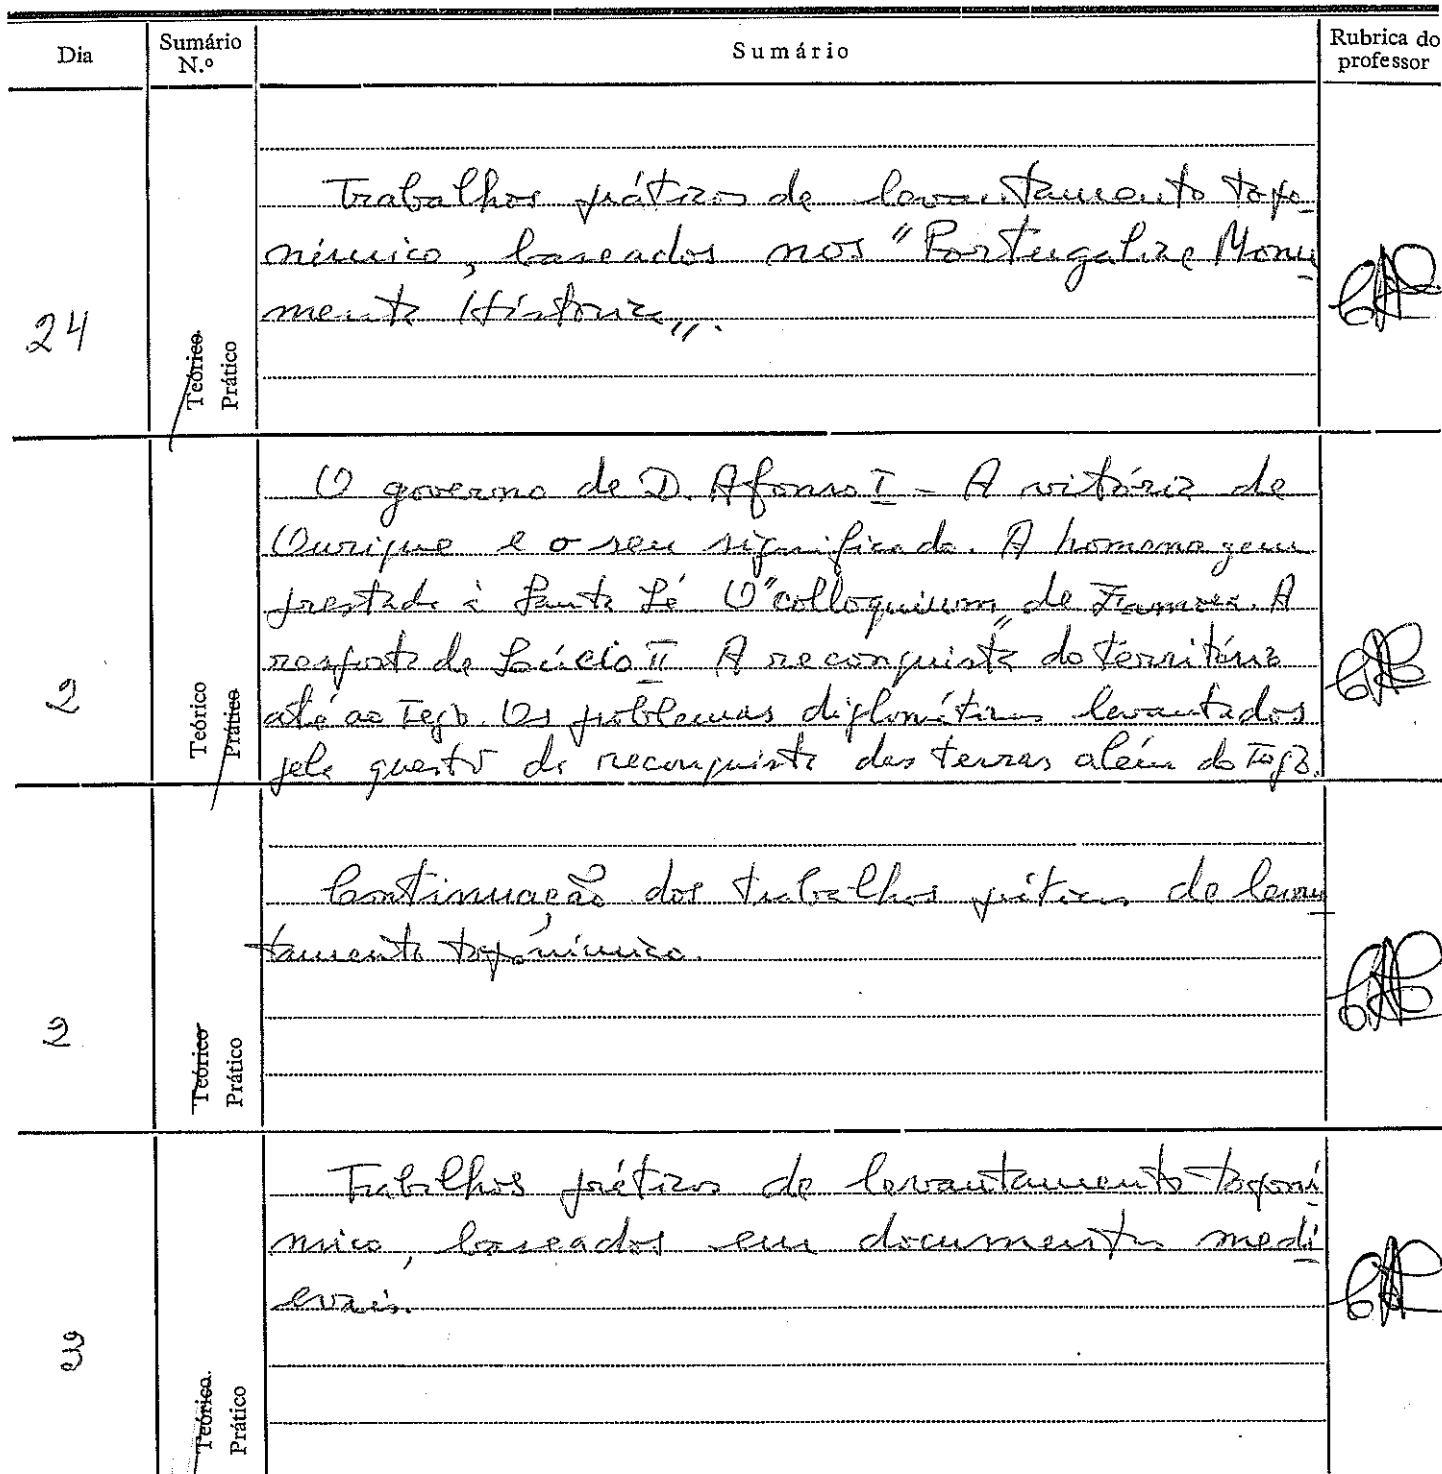 Dia Sumário N.º Sumário Rubrica do professor
Trabalhos práticos de levantamento topo-
nímico, baseados nos "Portugaliae Monu
menta Historica".
24
Teórico
Prático
O governo de D. Afonso I - A vitória de
Ourique e o seu significado. A homenagem
prestada à Santa Sé O "colloquium" de Zamora. A
resposta de Lúcio II A reconquista do território
até ao Tejo. Os problemas diplomáticos levantados
pela questão da reconquista das terras além do Tejo.
2
Teórico
Prático
Continuação dos trabalhos práticos de levan
tamento toponímico.
2
Teórico
Prático
Trabalhos práticos de levantamento toponí
mico, baseados em documentos medi
evais.
3
Teórico
Prático